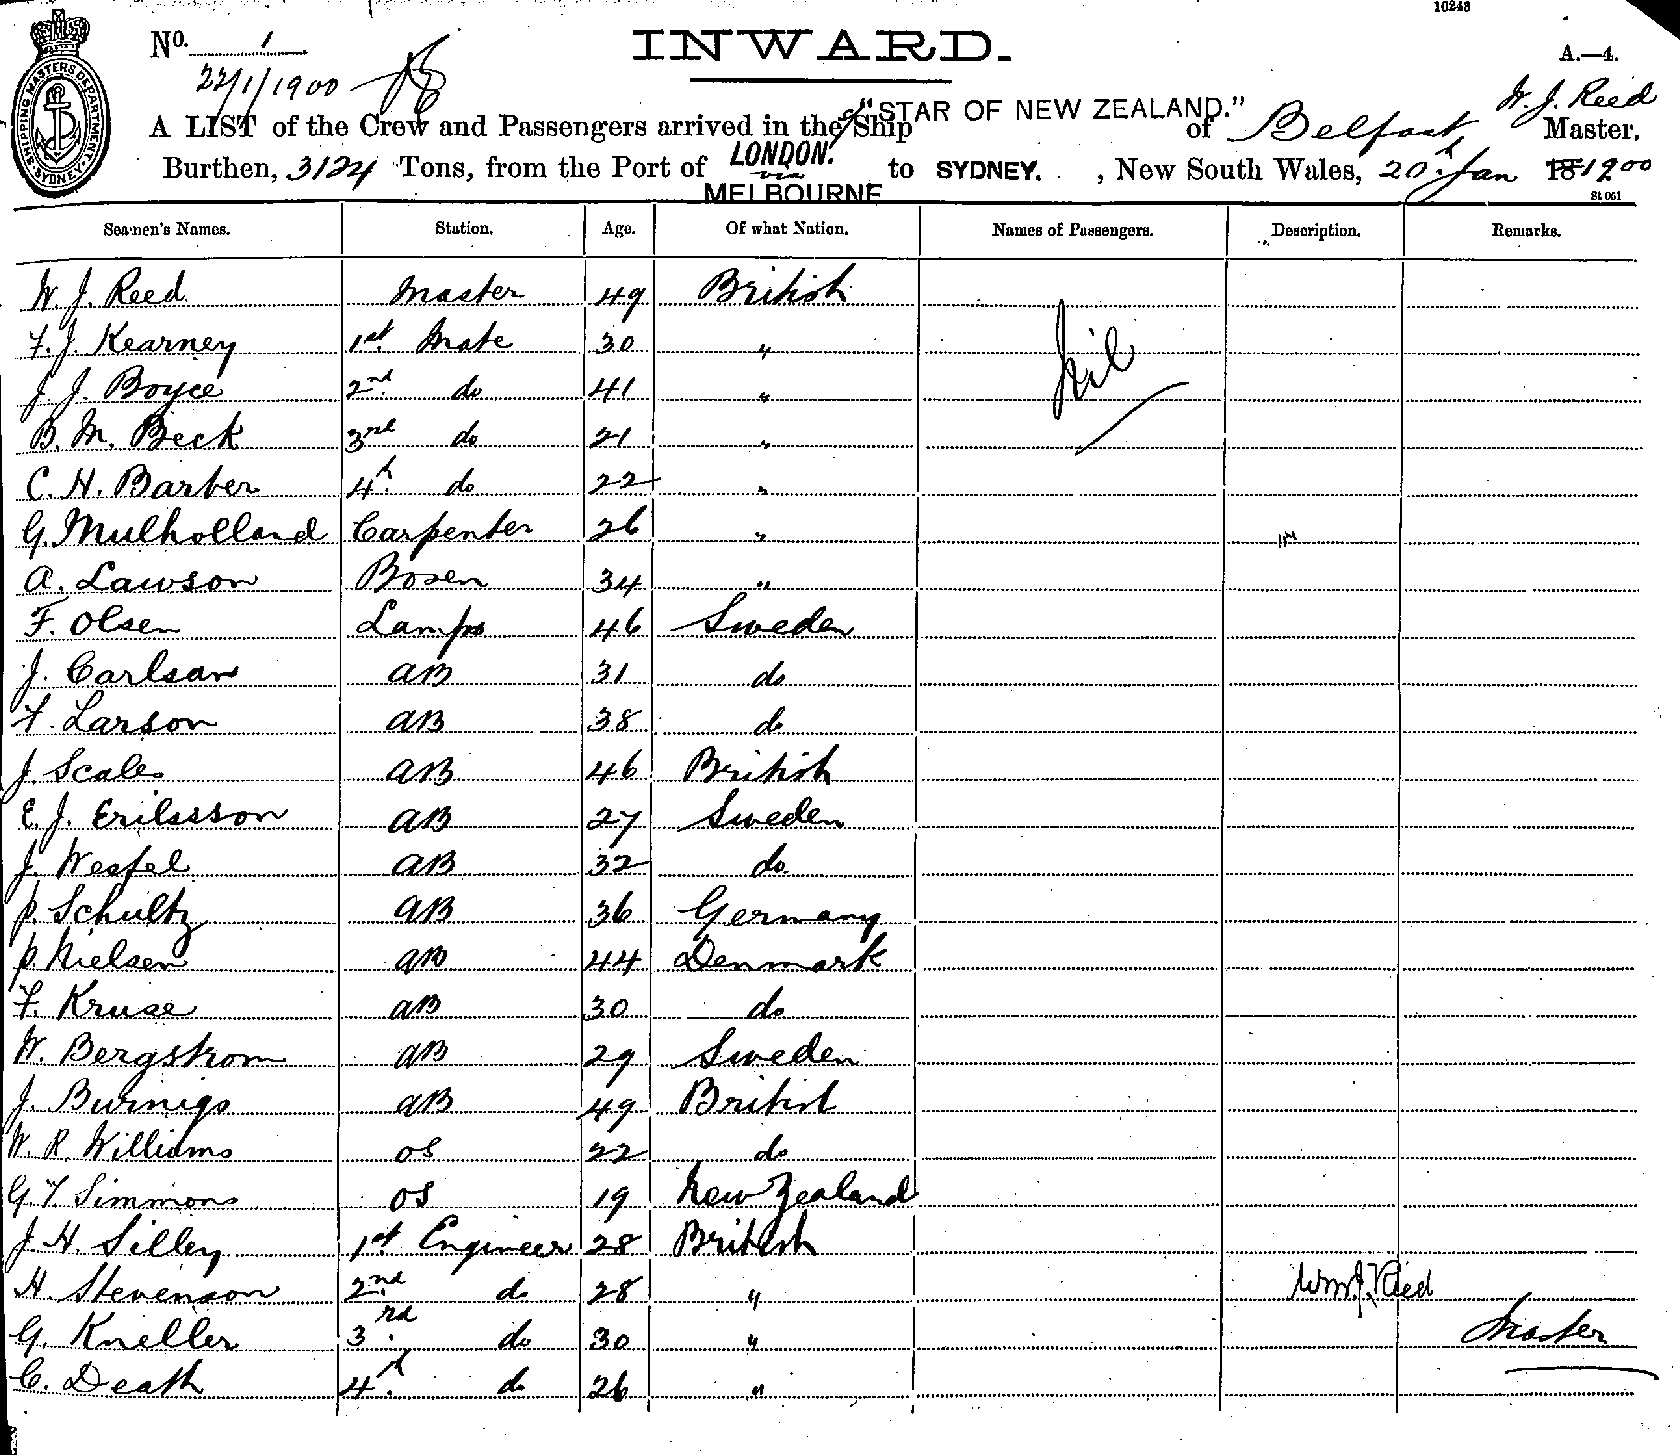 10248
No. 1 INWARD. A.—4.
22/1/1900
SHIPPING MASTERS DEPARTMENT SYDNEY
W. J. Reed
A LIST of the Crew and Passengers arrived in the Ship "STAR OF NEW ZEALAND." of Belfast, Master,
Burthen, 3124 Tons, from the Port of LONDON. via MELBOURNE to SYDNEY. , New South Wales, 20th Jan 18 1900
St 051
Seamen's Names. Station. Age. Of what Nation. Names of Passengers. Description. Remarks.
W. J. Reed Master 49 British
F. J. Kearney 1st. Mate 30 "
Nil
J. J. Boyce 2nd do 41 "
B. M. Beck 3rd do 21 "
C. H. Barber 4th do 22 "
G. Mulholland Carpenter 26 "
A. Lawson Bosen 34 "
F. Olsen Lamps 46 Sweden
J. Carlson AB 31 do
F. Larson AB 38 do
J. Scales AB 46 British
E. J. Erilssson AB 27 Sweden
J. Wespel AB 32 do
P. Schultz AB 36 Germany
P. Nielsen AB 44 Denmark
F. Kruse AB 30 do
W. Bergstrom AB 29 Sweden
J. Burnigs AB 49 British
W. R. Williams OS 22 do
G. F. Simmons OS 19 New Zealand
J. H. Silley 1st Engineer 28 British
H. Stevenson 2nd. do 28 "
Wm. J. Reed
G. Kneller 3rd. do 30 "
Master
C. Death 4th. do 26 "